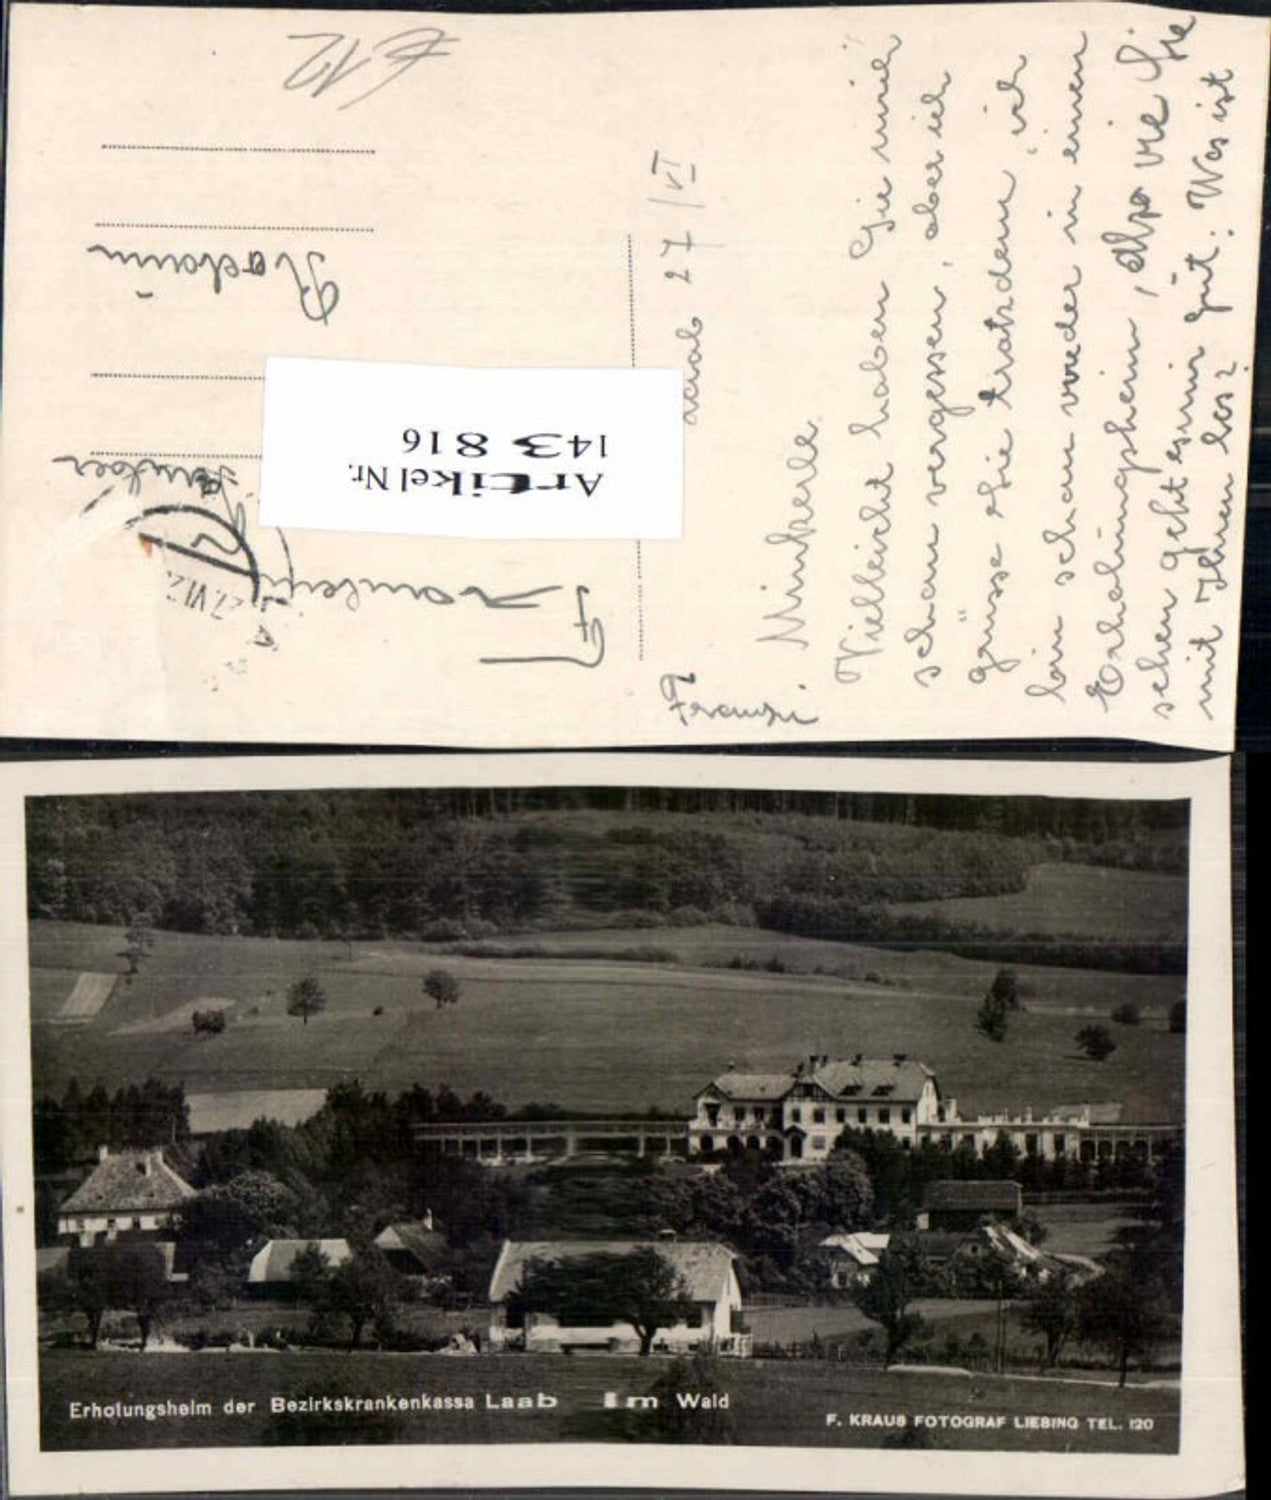 €12
Laab 27/VI
Minkerle
Vielleicht haben Sie mich
schon vergessen, aber ich
grüsse Sie trotzdem, ich
bin schon wieder in einem
Erholungsheim, also wie Sie
sehen geht es mir gut. Was ist
mit Ihnen los?
Franzi
Rodaun
Artikel Nr.
143 816
27.VI.2
Erholungsheim der Bezirkskrankenkassa Laab im Wald
F. KRAUS FOTOGRAF LIESING TEL. 120